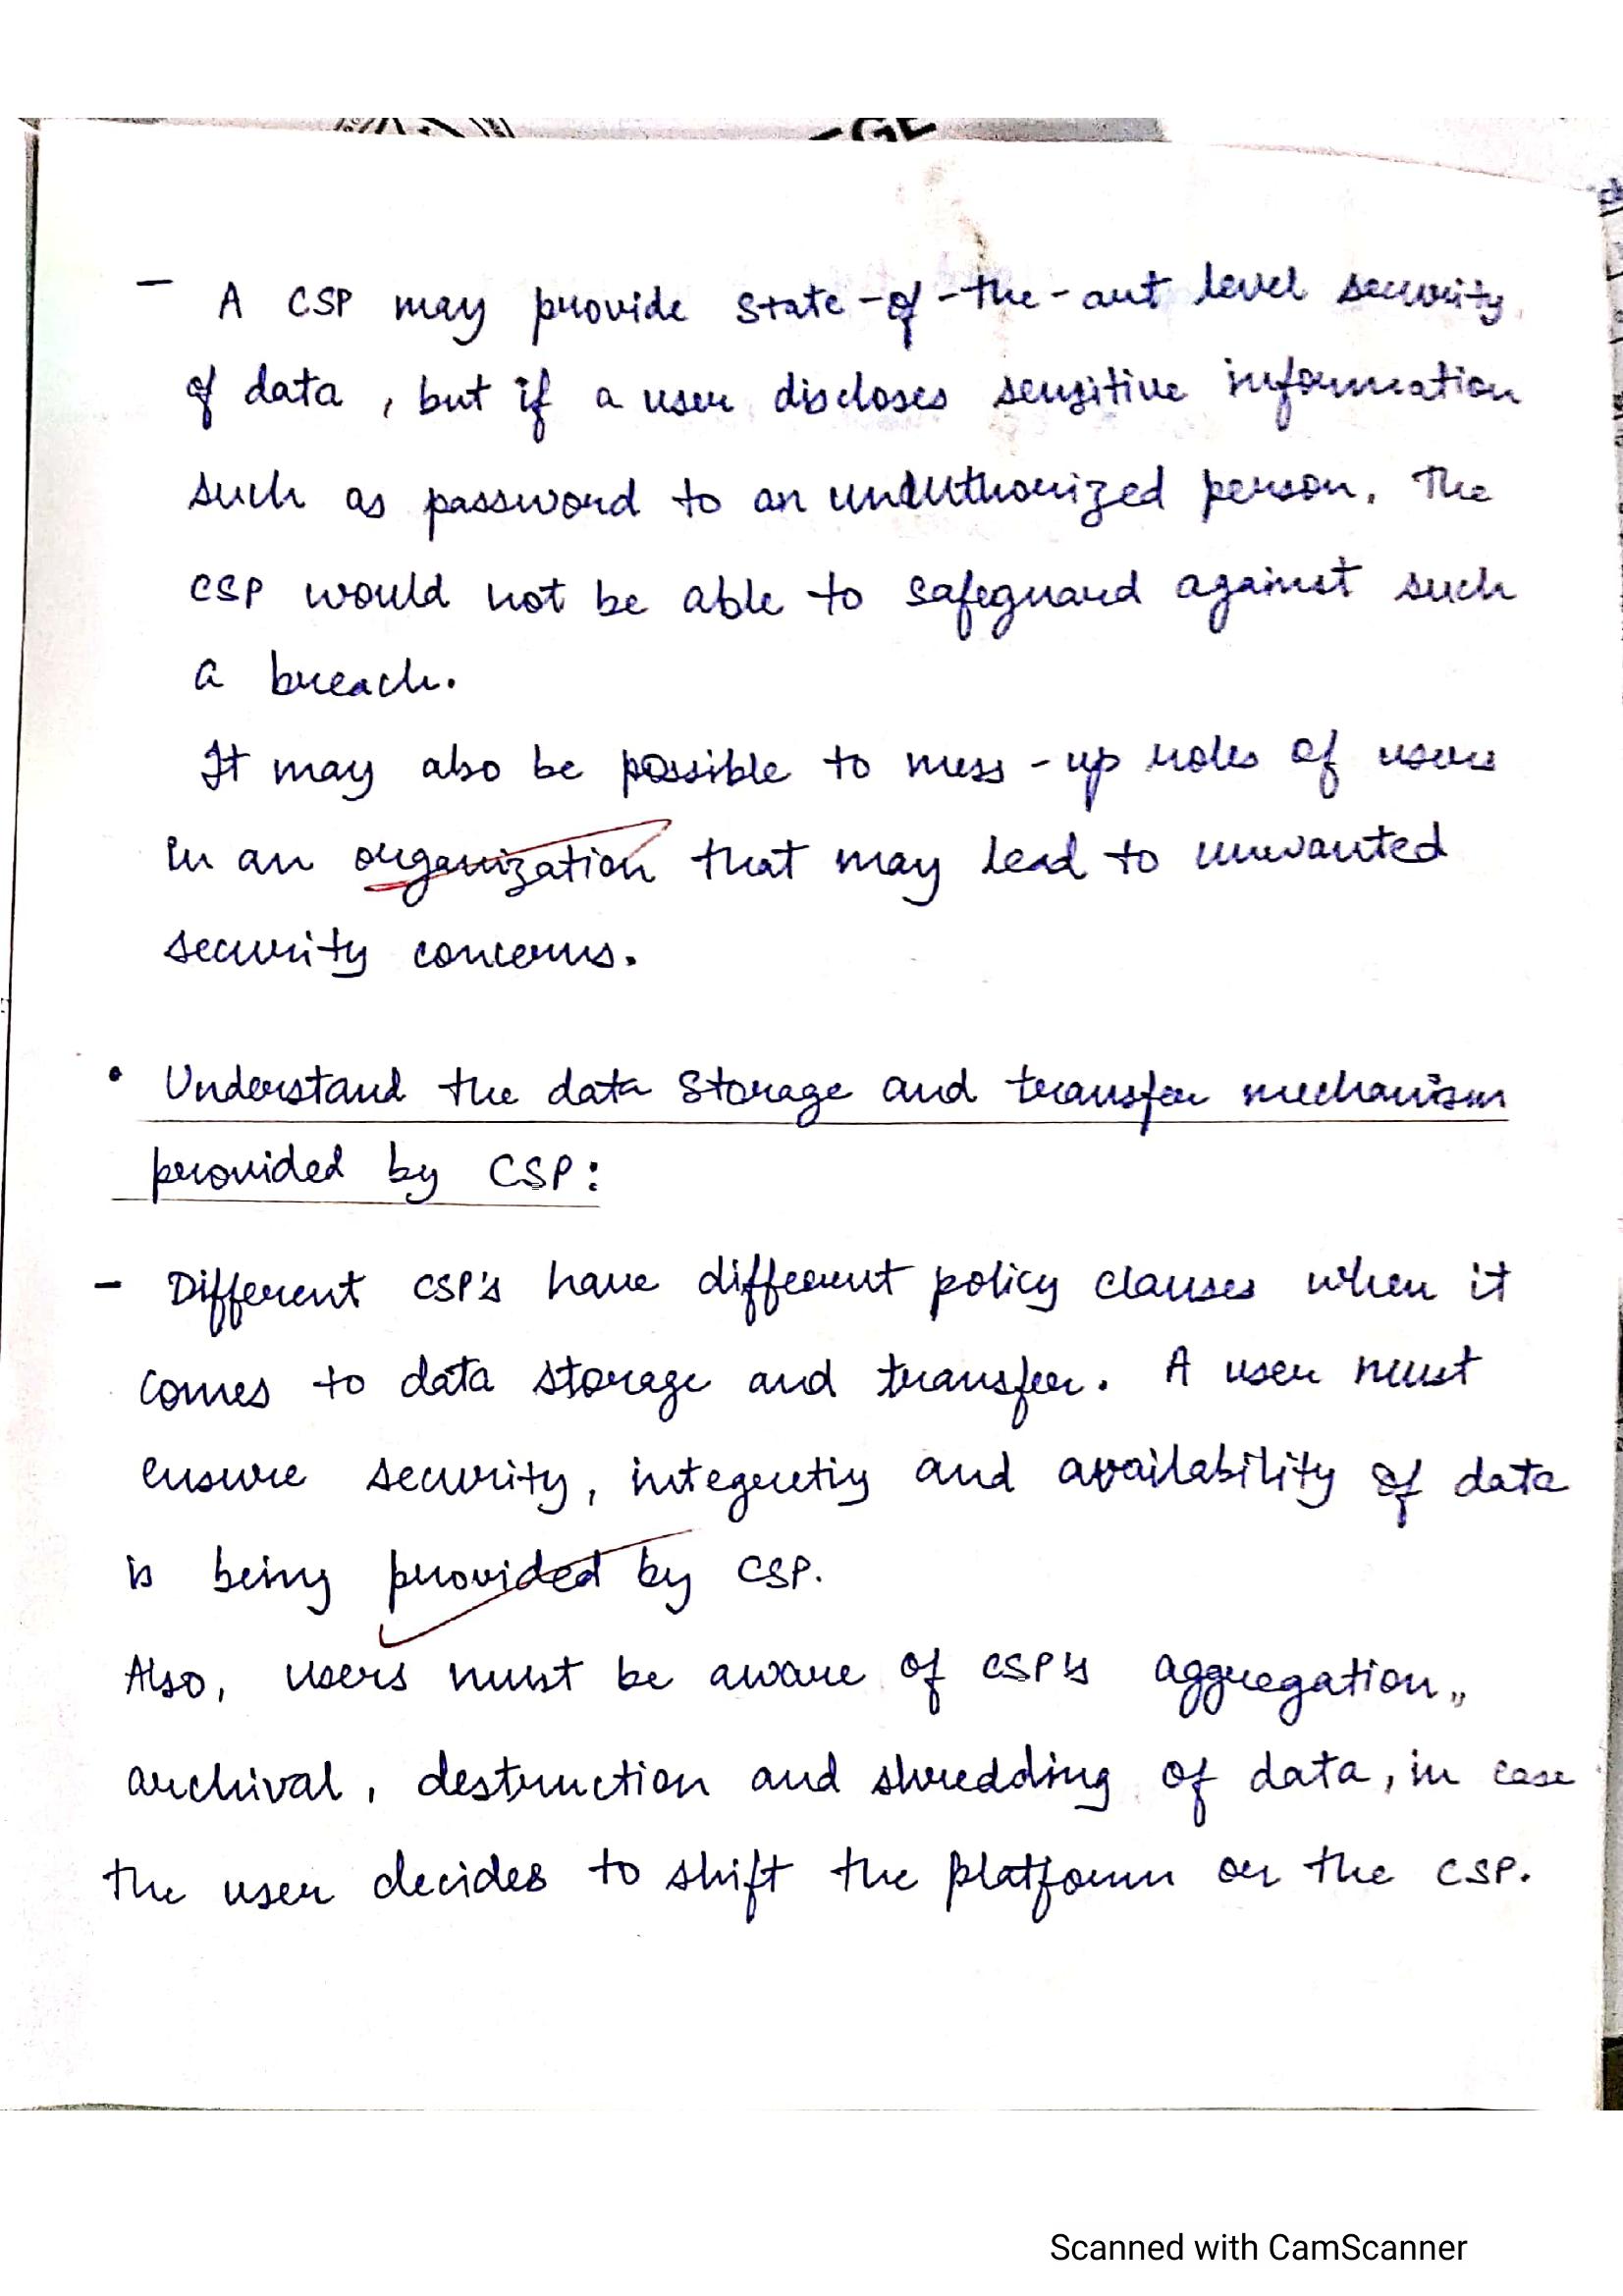 GE
- A CSP may provide state-of-the-art level security
of data, but if a user discloses sensitive information
such as password to an unauthorized person. The
CSP would not be able to safeguard against such
a breach.
It may also be possible to mess-up roles of users
in an organization that may lead to unwanted
security concerns.
• Understand the data storage and transfer mechanism
provided by CSP:
- Different CSP's have different policy clauses when it
comes to data storage and transfer. A user must
ensure security, integretiy and availability of data
is being provided by CSP.
Also, users must be aware of CSP's aggregation,,
archival, destruction and shredding of data, in case
the user decides to shift the platform or the CSP.
Scanned with CamScanner